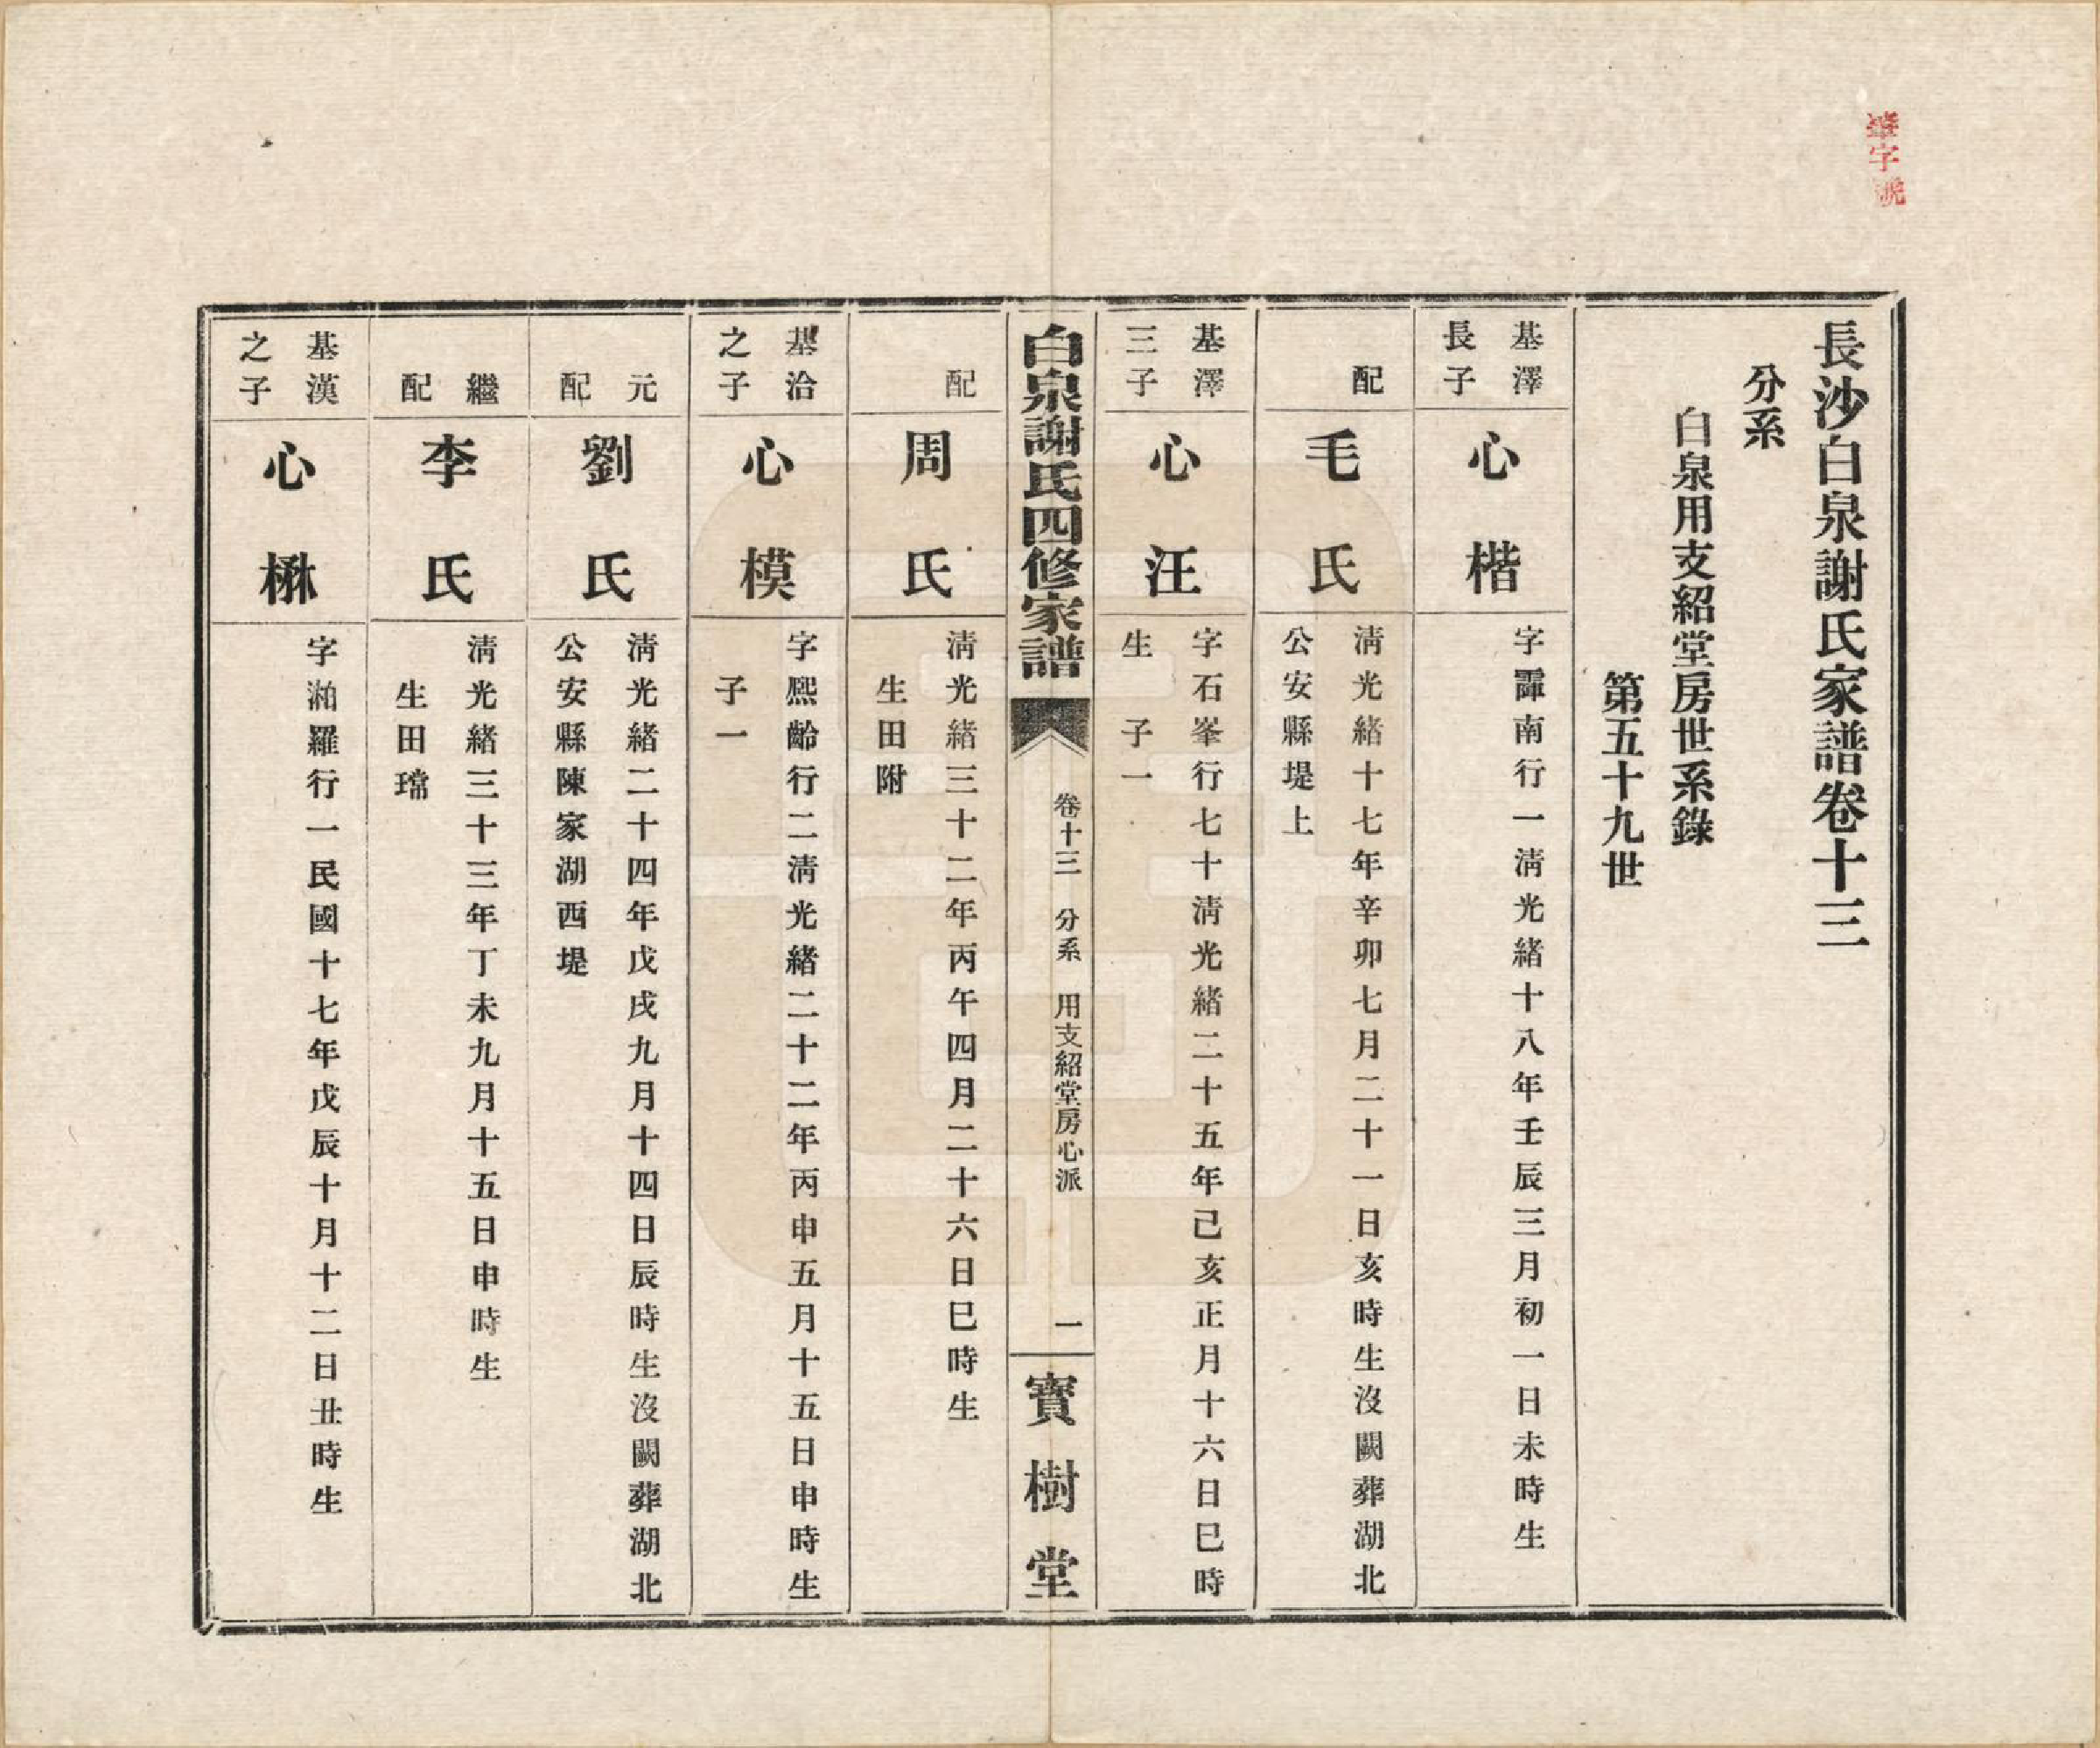 字號
長沙白泉謝氏家譜卷十三
分系
白泉用支紹堂房世系錄
第五十九世
基澤
長子
心楷
字霨南行一清光緒十八年壬辰三月初一日未時生
配
毛氏
清光緒十七年辛卯七月二十一日亥時生沒闕葬湖北
公安縣堤上
基澤
三子
心汪
字石峯行七十清光緒二十五年己亥正月十六日巳時
生 子一
白泉謝氏四修家譜
卷十三 分系 用支紹堂房心派
一
寶樹堂
配
周氏
清光緒三十二年丙午四月二十六日巳時生
生田附
基洽
之子
心模
字熙齡行二清光緒二十二年丙申五月十五日申時生
子一
元
配
劉氏
清光緒二十四年戊戌九月十四日辰時生沒闕葬湖北
公安縣陳家湖西堤
繼
配
李氏
清光緒三十三年丁未九月十五日申時生
生田璫
基漢
之子
心楙
字湘羅行一民國十七年戊辰十月十二日丑時生